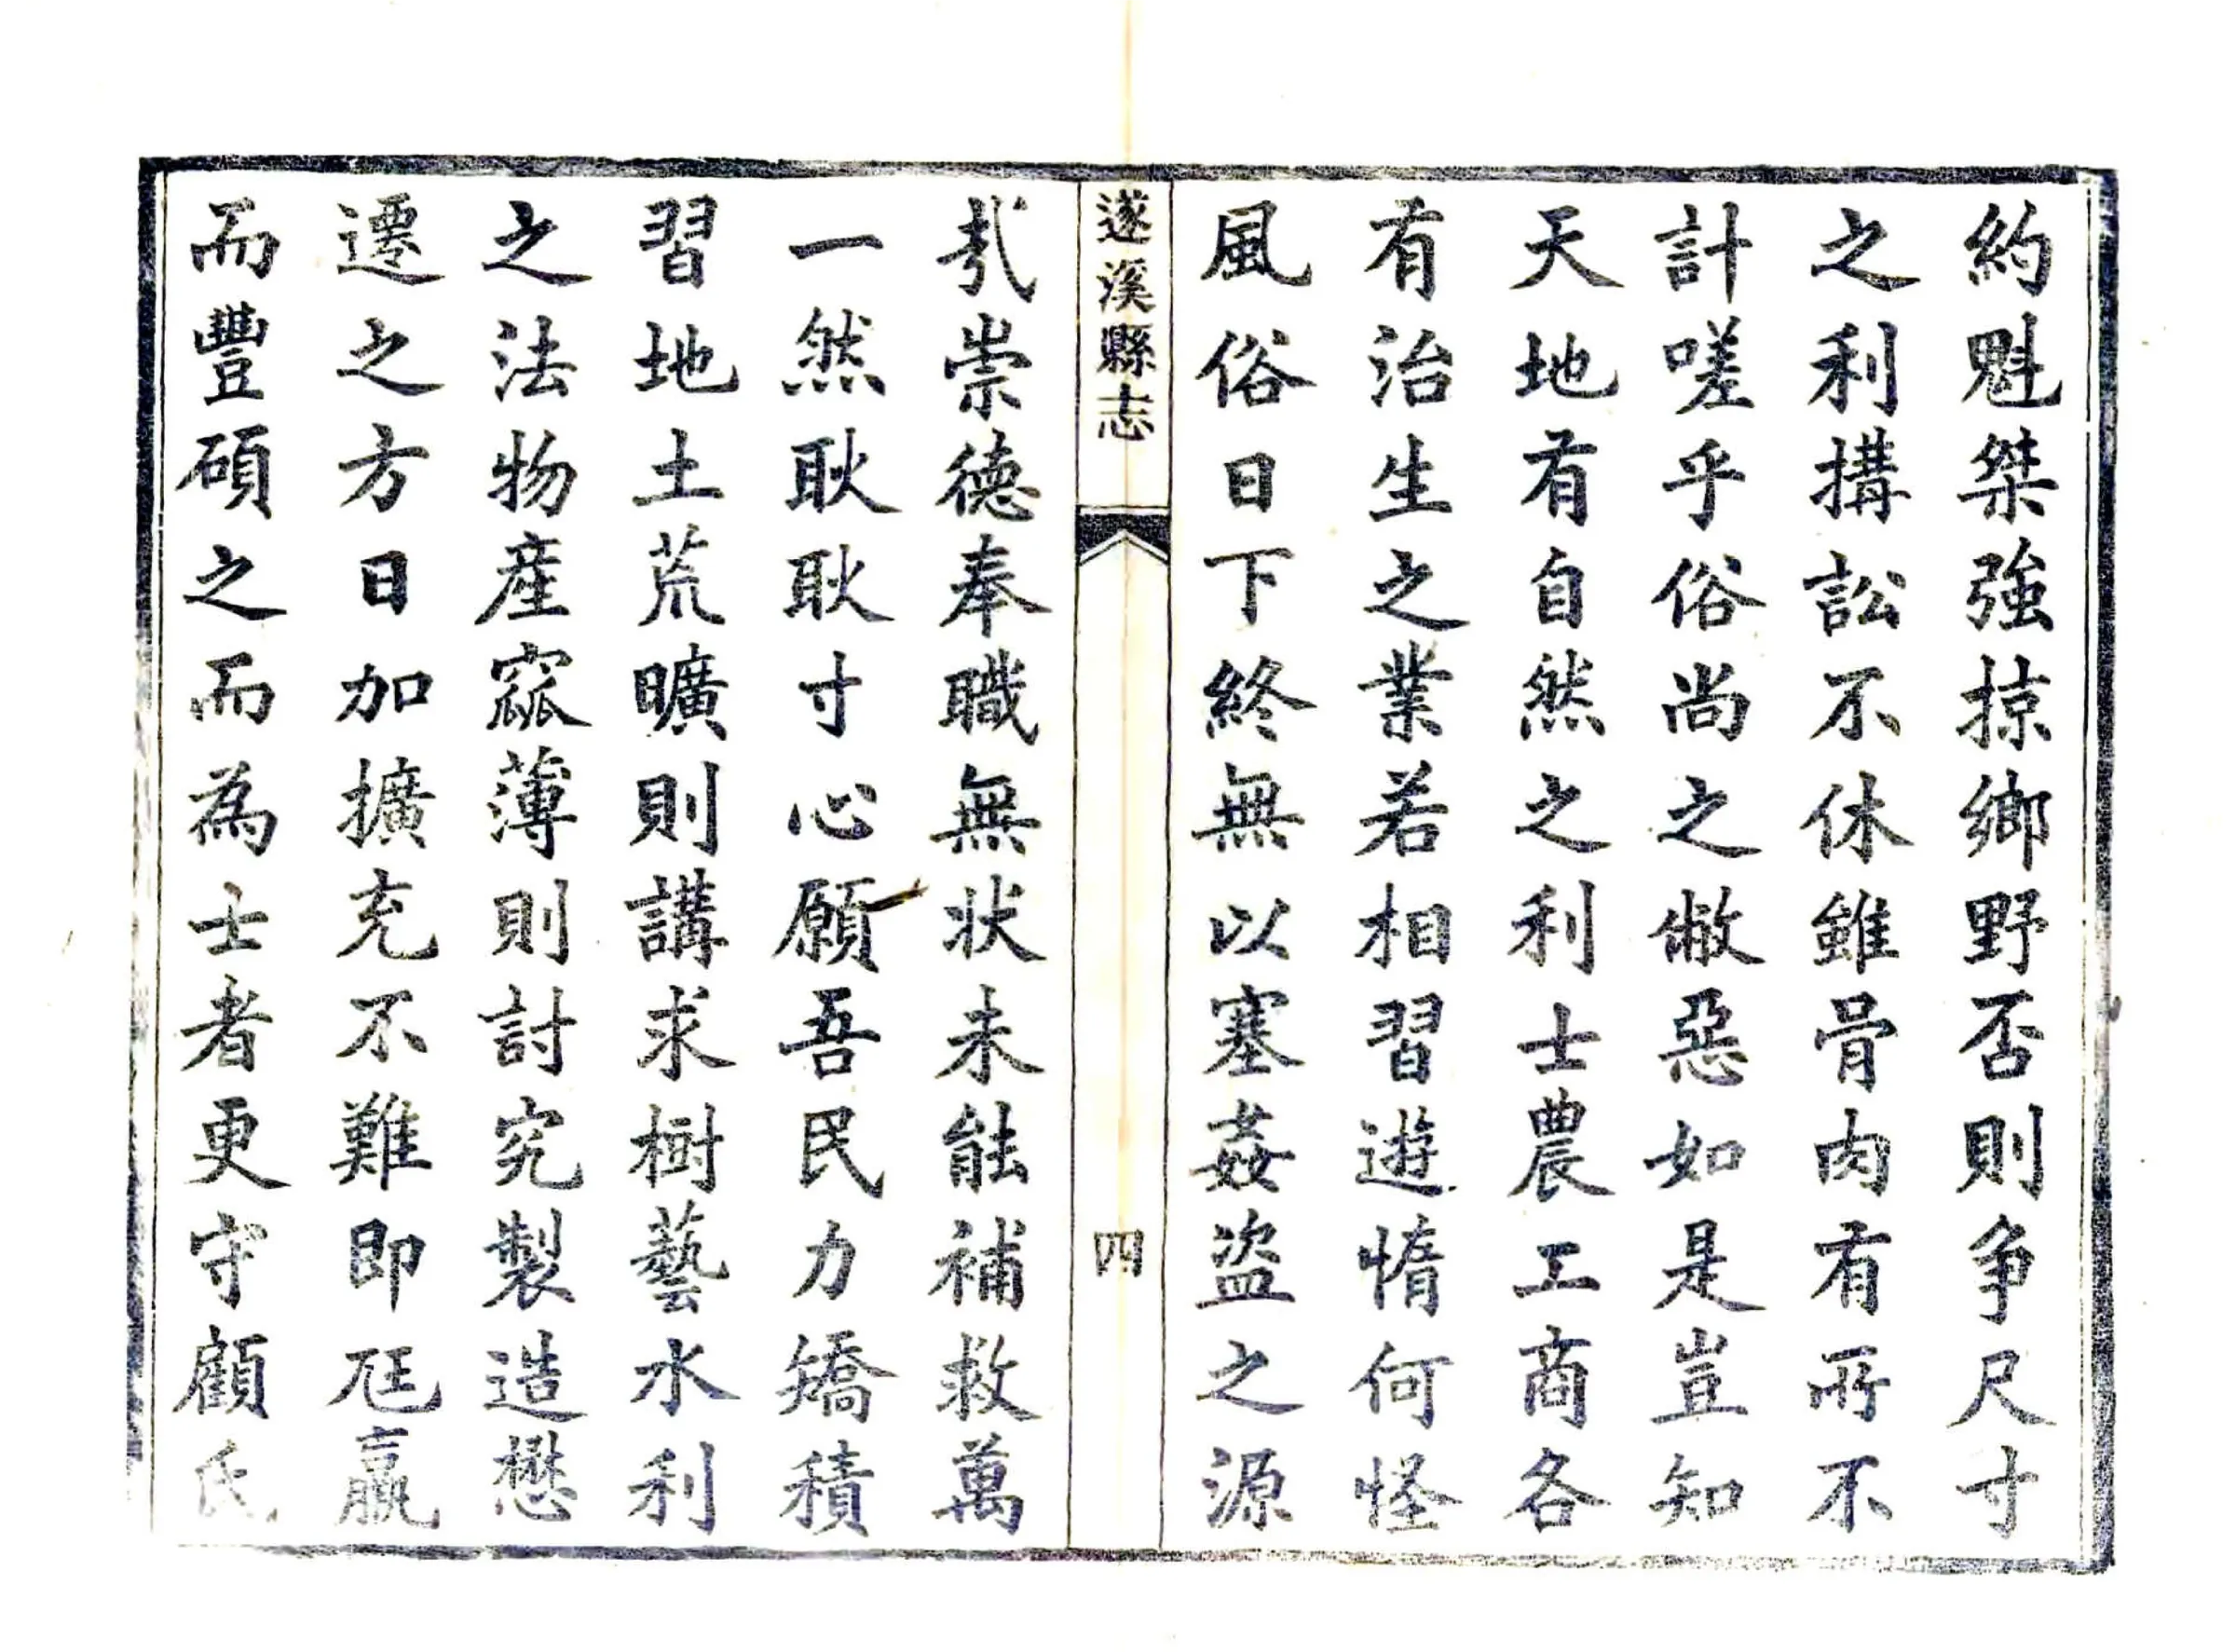 約魁桀強掠鄉野否則争尺寸
之利搆訟不休雖骨肉有所不
計嗟乎俗尚之敝惡如是豈知
天地有自然之利士農工商各
有治生之業若相習遊惰何怪
風俗日下終無以塞姦盜之源
遂溪縣志
四
㢤崇德奉職無状未能補救萬
一然耿耿寸心願吾民力矯積
習地土荒曠則講求樹藝水利
之法物産窳薄則討究製造懋
遷之方日加擴充不難即尫羸
而豐碩之而為士者更守顧氏